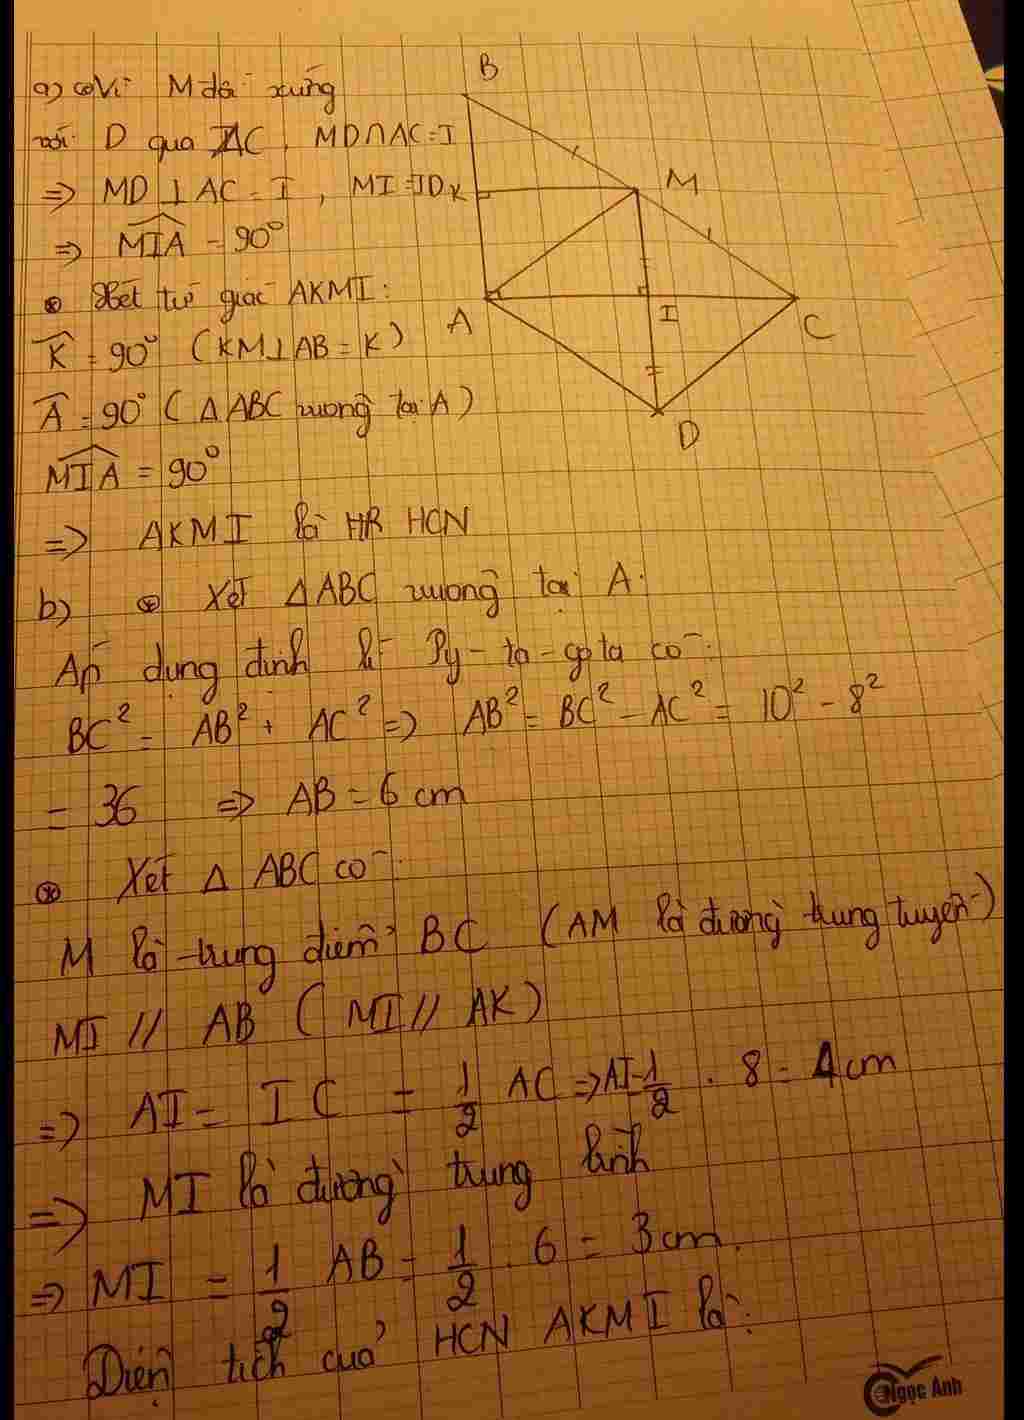 a) có Vì M đối xứng
với D qua AC, MD∩AC=I
=> MD ⊥ AC = I, MI = ID
=> MIA = 90°
Xét tứ giác AKMI:
K = 90° (KM⊥AB = K)
A = 90° (Δ ABC vuông tại A)
MIA = 90°
=> AKMI là HCN
B
M
K
A
I
C
D
b) Xét Δ ABC vuông tại A:
Áp dụng định lí Py-ta-go ta có:
BC² = AB² + AC² => AB² = BC² - AC² = 10² - 8²
= 36 => AB = 6 cm
Xét Δ ABC có:
M là trung điểm BC (AM là đường trung tuyến)
MI // AB (MI // AK)
=> AI = IC = 1/2 AC => AI = 1/2 . 8 = 4cm
=> MI là đường trung bình
=> MI = 1/2 AB = 1/2 . 6 = 3cm.
Diện tích của HCN AKMI là:
Ngọc Anh